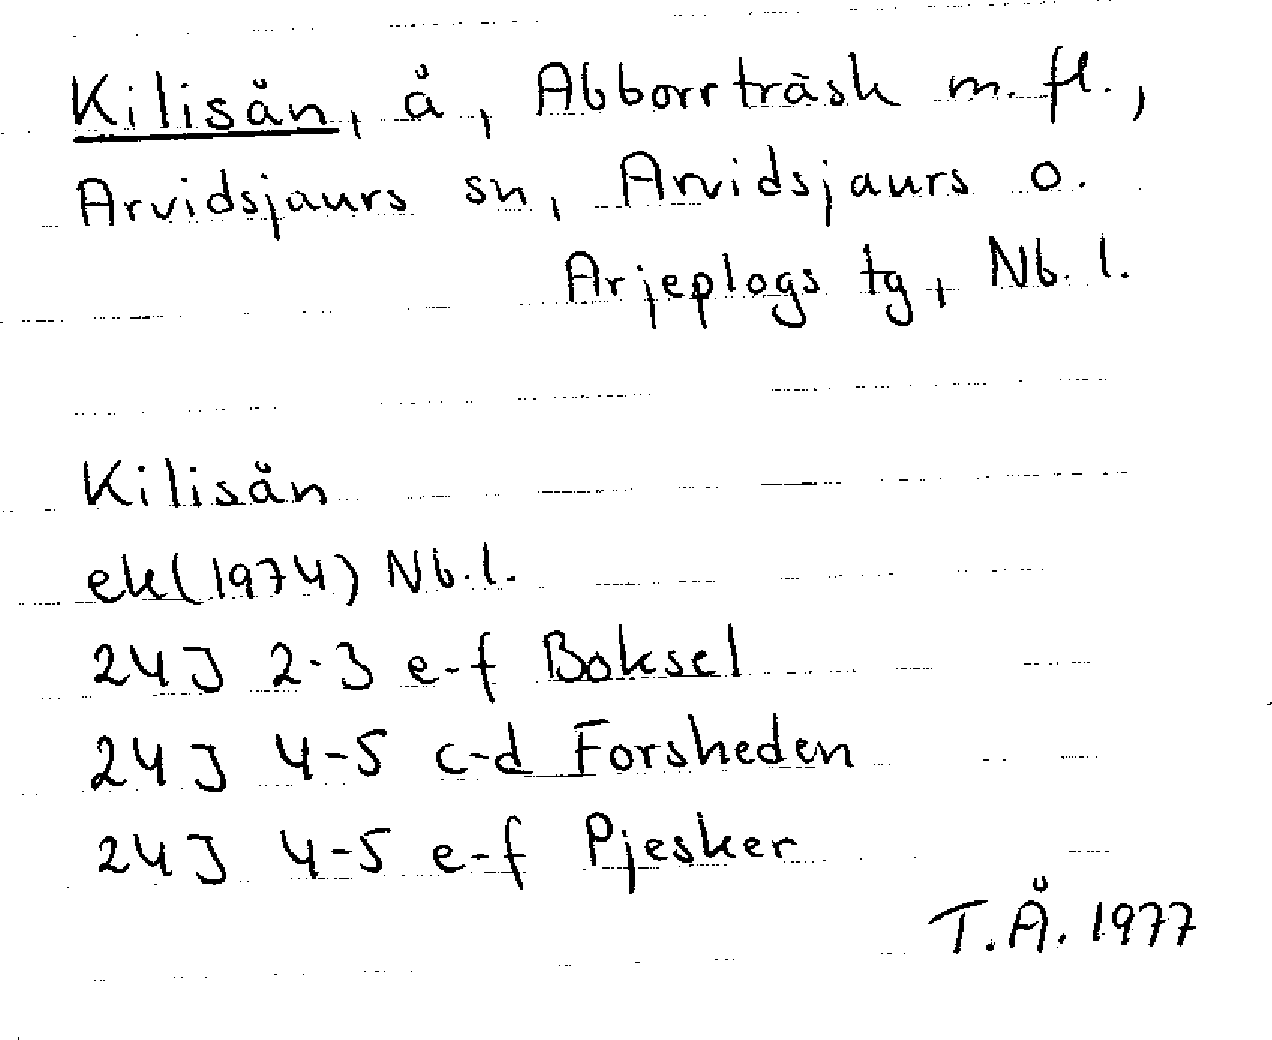 Kilisån, å, Abborrträsk m. fl.,
Arvidsjaurs sn, Arvidsjaurs o.
Arjeplogs tg, Nb. l.
Kilisån
ek(1974) Nb. l.
24J 2-3 e-f Boksel
24J 4-5 c-d Forsheden
24J 4-5 e-f Pjesker
T.Å. 1977